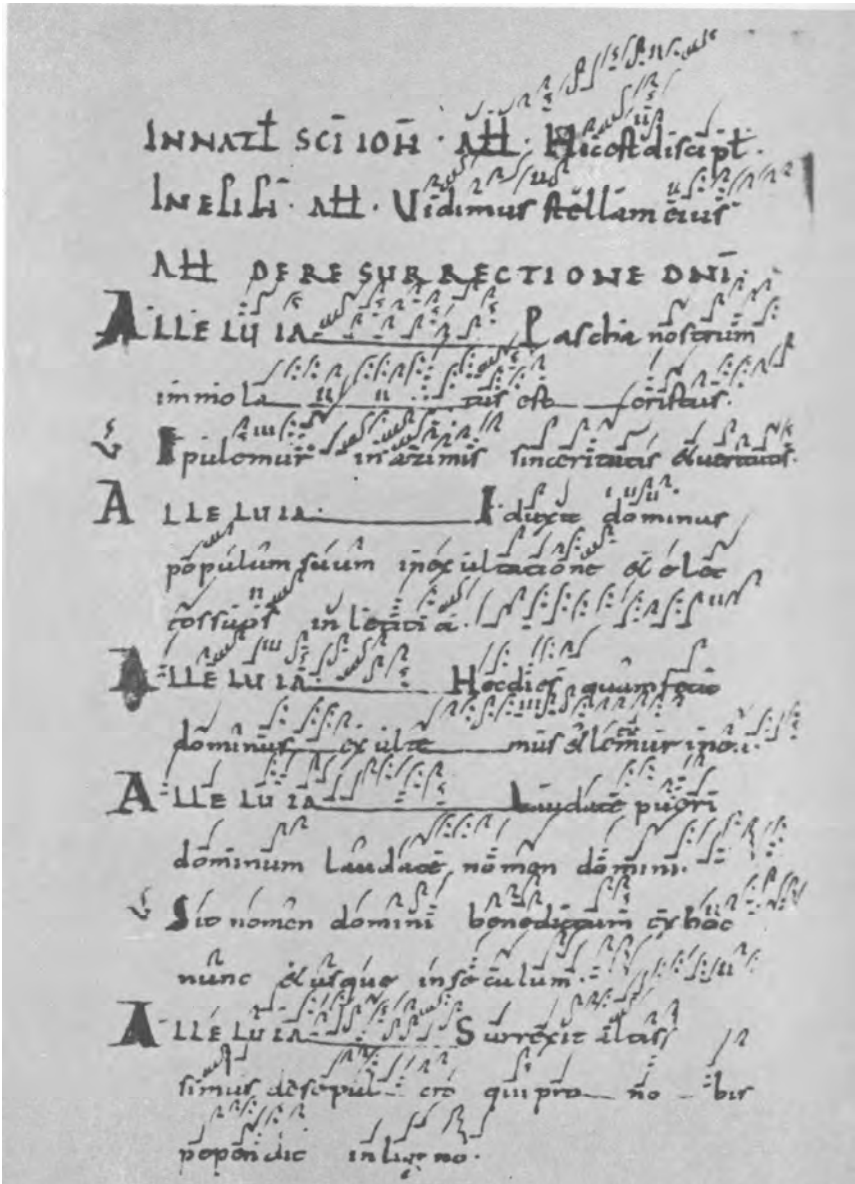 IN NAT̄ SCĪ IOH̄ · AĦ · Hic est discipl̄.
AĦ · Vidimus stellam eius
AĦ DE RESURRECTIONE DNĪ.
ALLELUIA Pascha nostrum
immola tus est cristus.
Epulemur in azimis sinceritatis & ueritatis.
ALLELUIA. Eduxit dominus
populum suum in exultatione & elec
tos suos in letitia.
ALLELUIA Hec dies quam fecit
dominus exulte mus & letemur in ea.
ALLELUIA Laudate pueri
dominum laudate nomen domini.
Sit nomen domini benedictum ex hoc
nunc & usque in seculum.
ALLELUIA Surrexit altis
simus de sepul cro qui pro no bis
pependit in ligno.